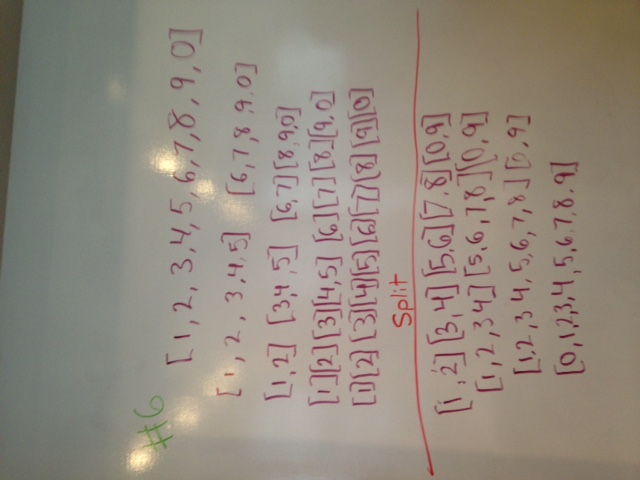 #6
[1, 2, 3,4, 5, 6,7,8, 9, 0]
[1, 2, 3,4,5] [6,7,8,9.0]
[1,2] [3,4,5] [6,7][8,9,0]
[1][2][3][4,5] [6][7][8][9,0]
[1][2] [3][4][5][6][7][8] [9][0]
Split
[1,2][3,4][5,6][7,8][0,9]
[1,2,34][5,6,7,8][0,9]
[1,2,34,5,6,7,8][0,9]
[0,1,2,3,4,5,6,7,8.9]